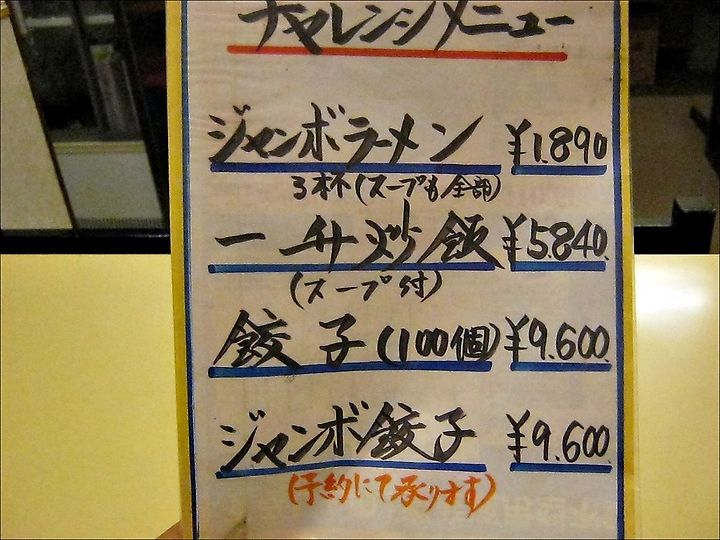 チャレンジメニュー
ジャンボラーメン ¥1.890
3杯(スープも全部)
一升炒飯 ¥5.840.
(スープ付)
餃子(100個) ¥9.600.
ジャンボ餃子 ¥9.600
(予約にて承ります)